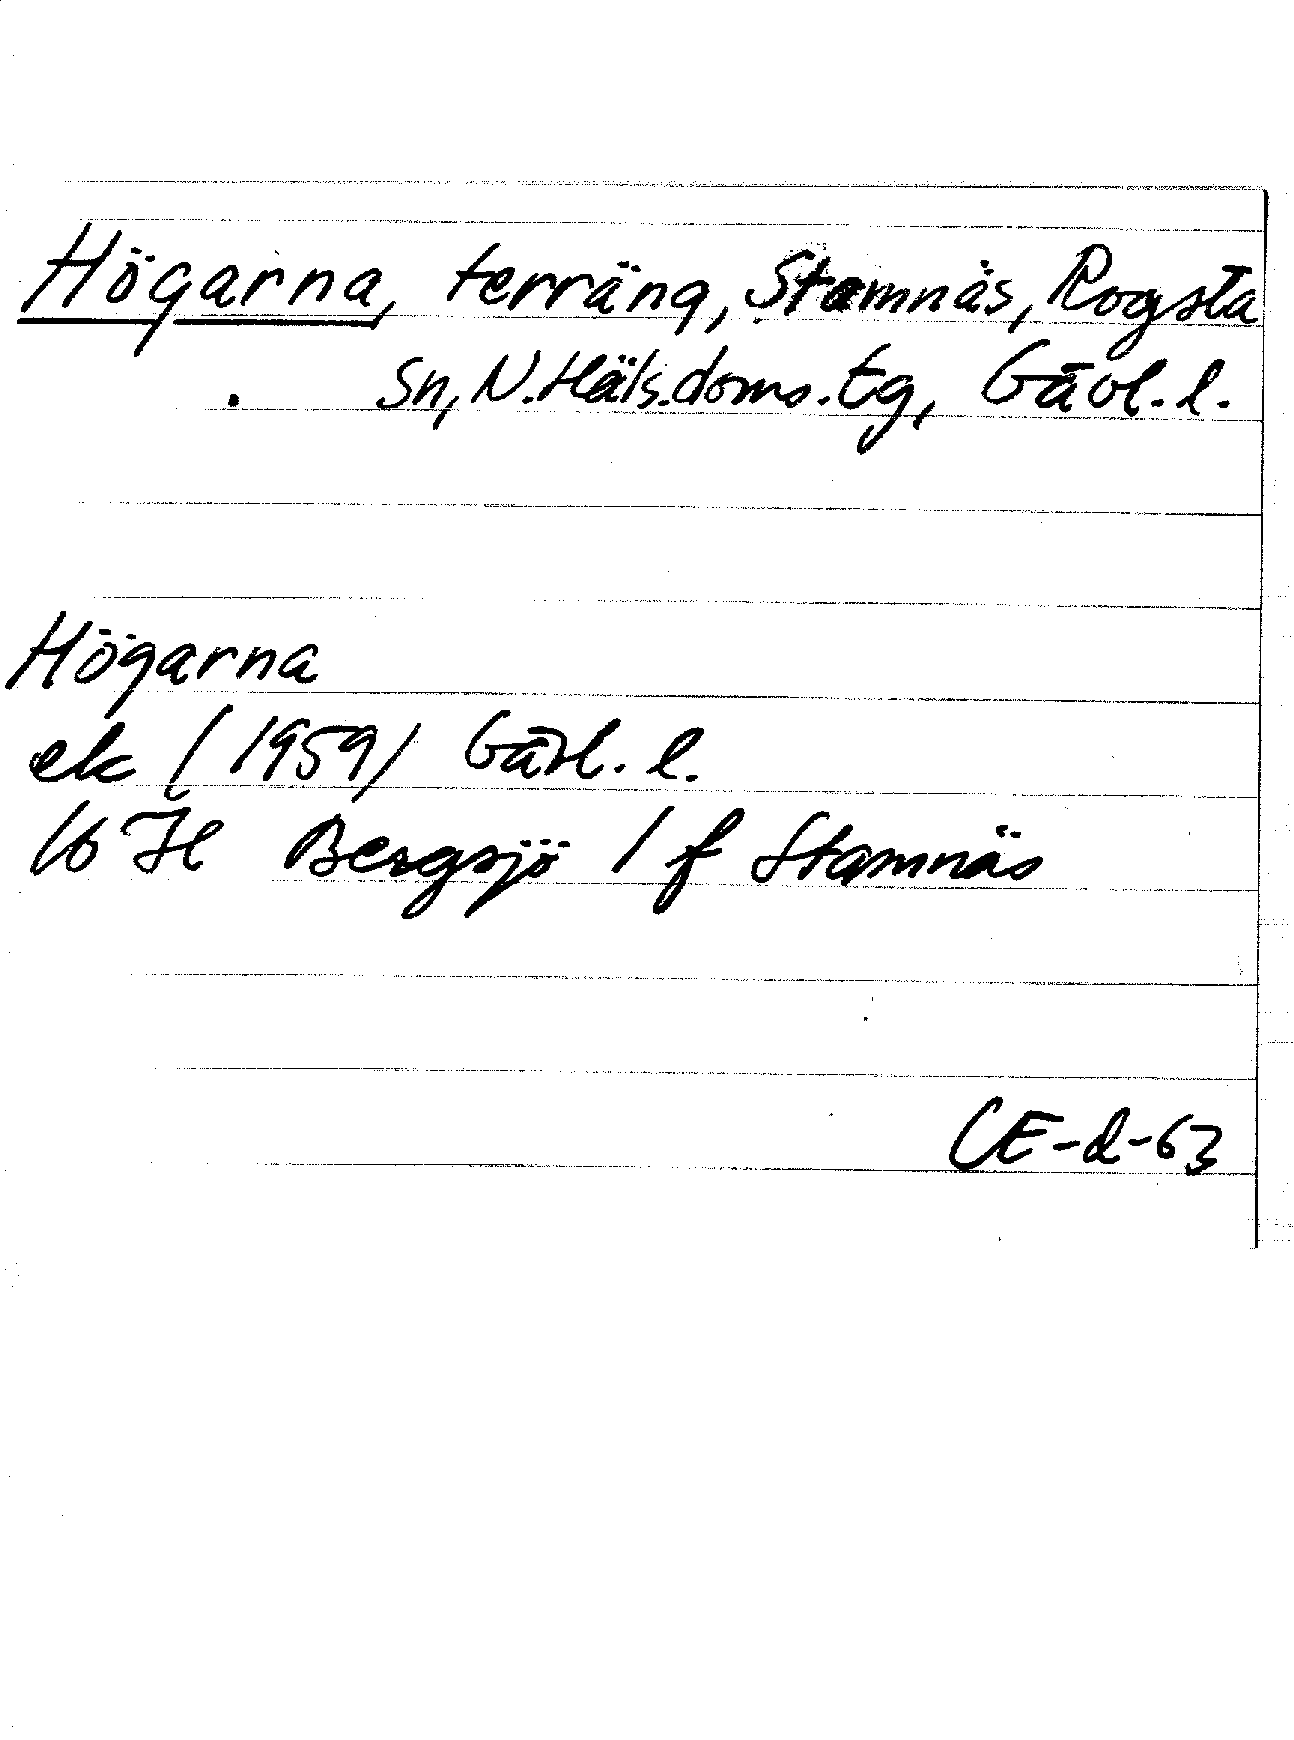 Högarna, terräng, Stamnäs, Rogsta
Sn, N. Häls. doms. tg, Gävl. l.
Högarna
ek (1959) Gävl. l.
16 H Bergsjö 1 f Stamnäs
CE-d-63